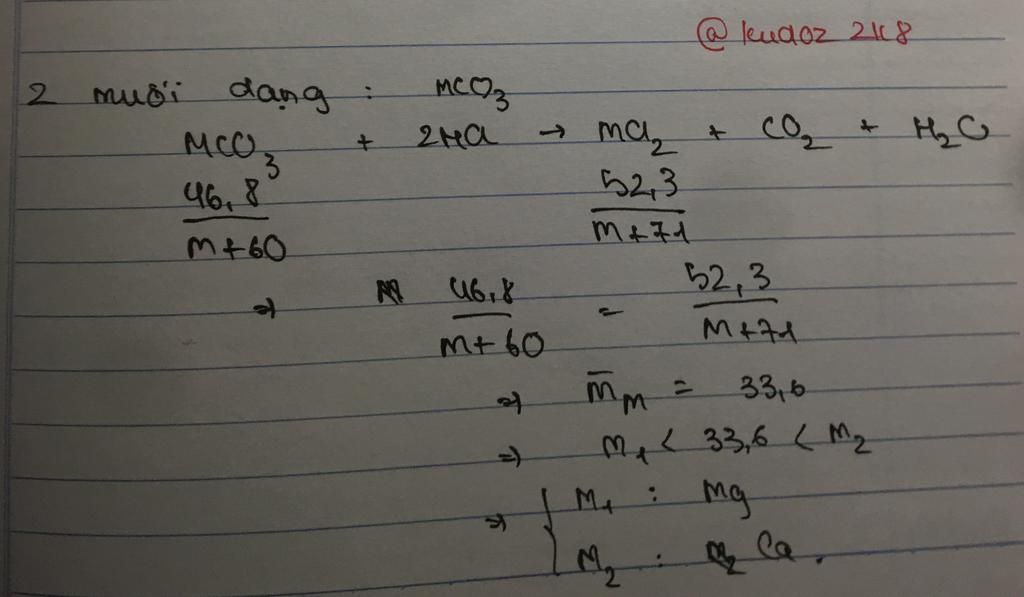 @kudoz 2k8
2 muối dạng : MCO3
MCO3 + 2HCl → MCl2 + CO2 + H2O
46,8/M+60 52,3/M+71
⇒ 46,8/M+60 = 52,3/M+71
⇒ M̄M = 33,6
⇒ M1 < 33,6 < M2
⇒ { M1 : Mg
M2 : Ca.